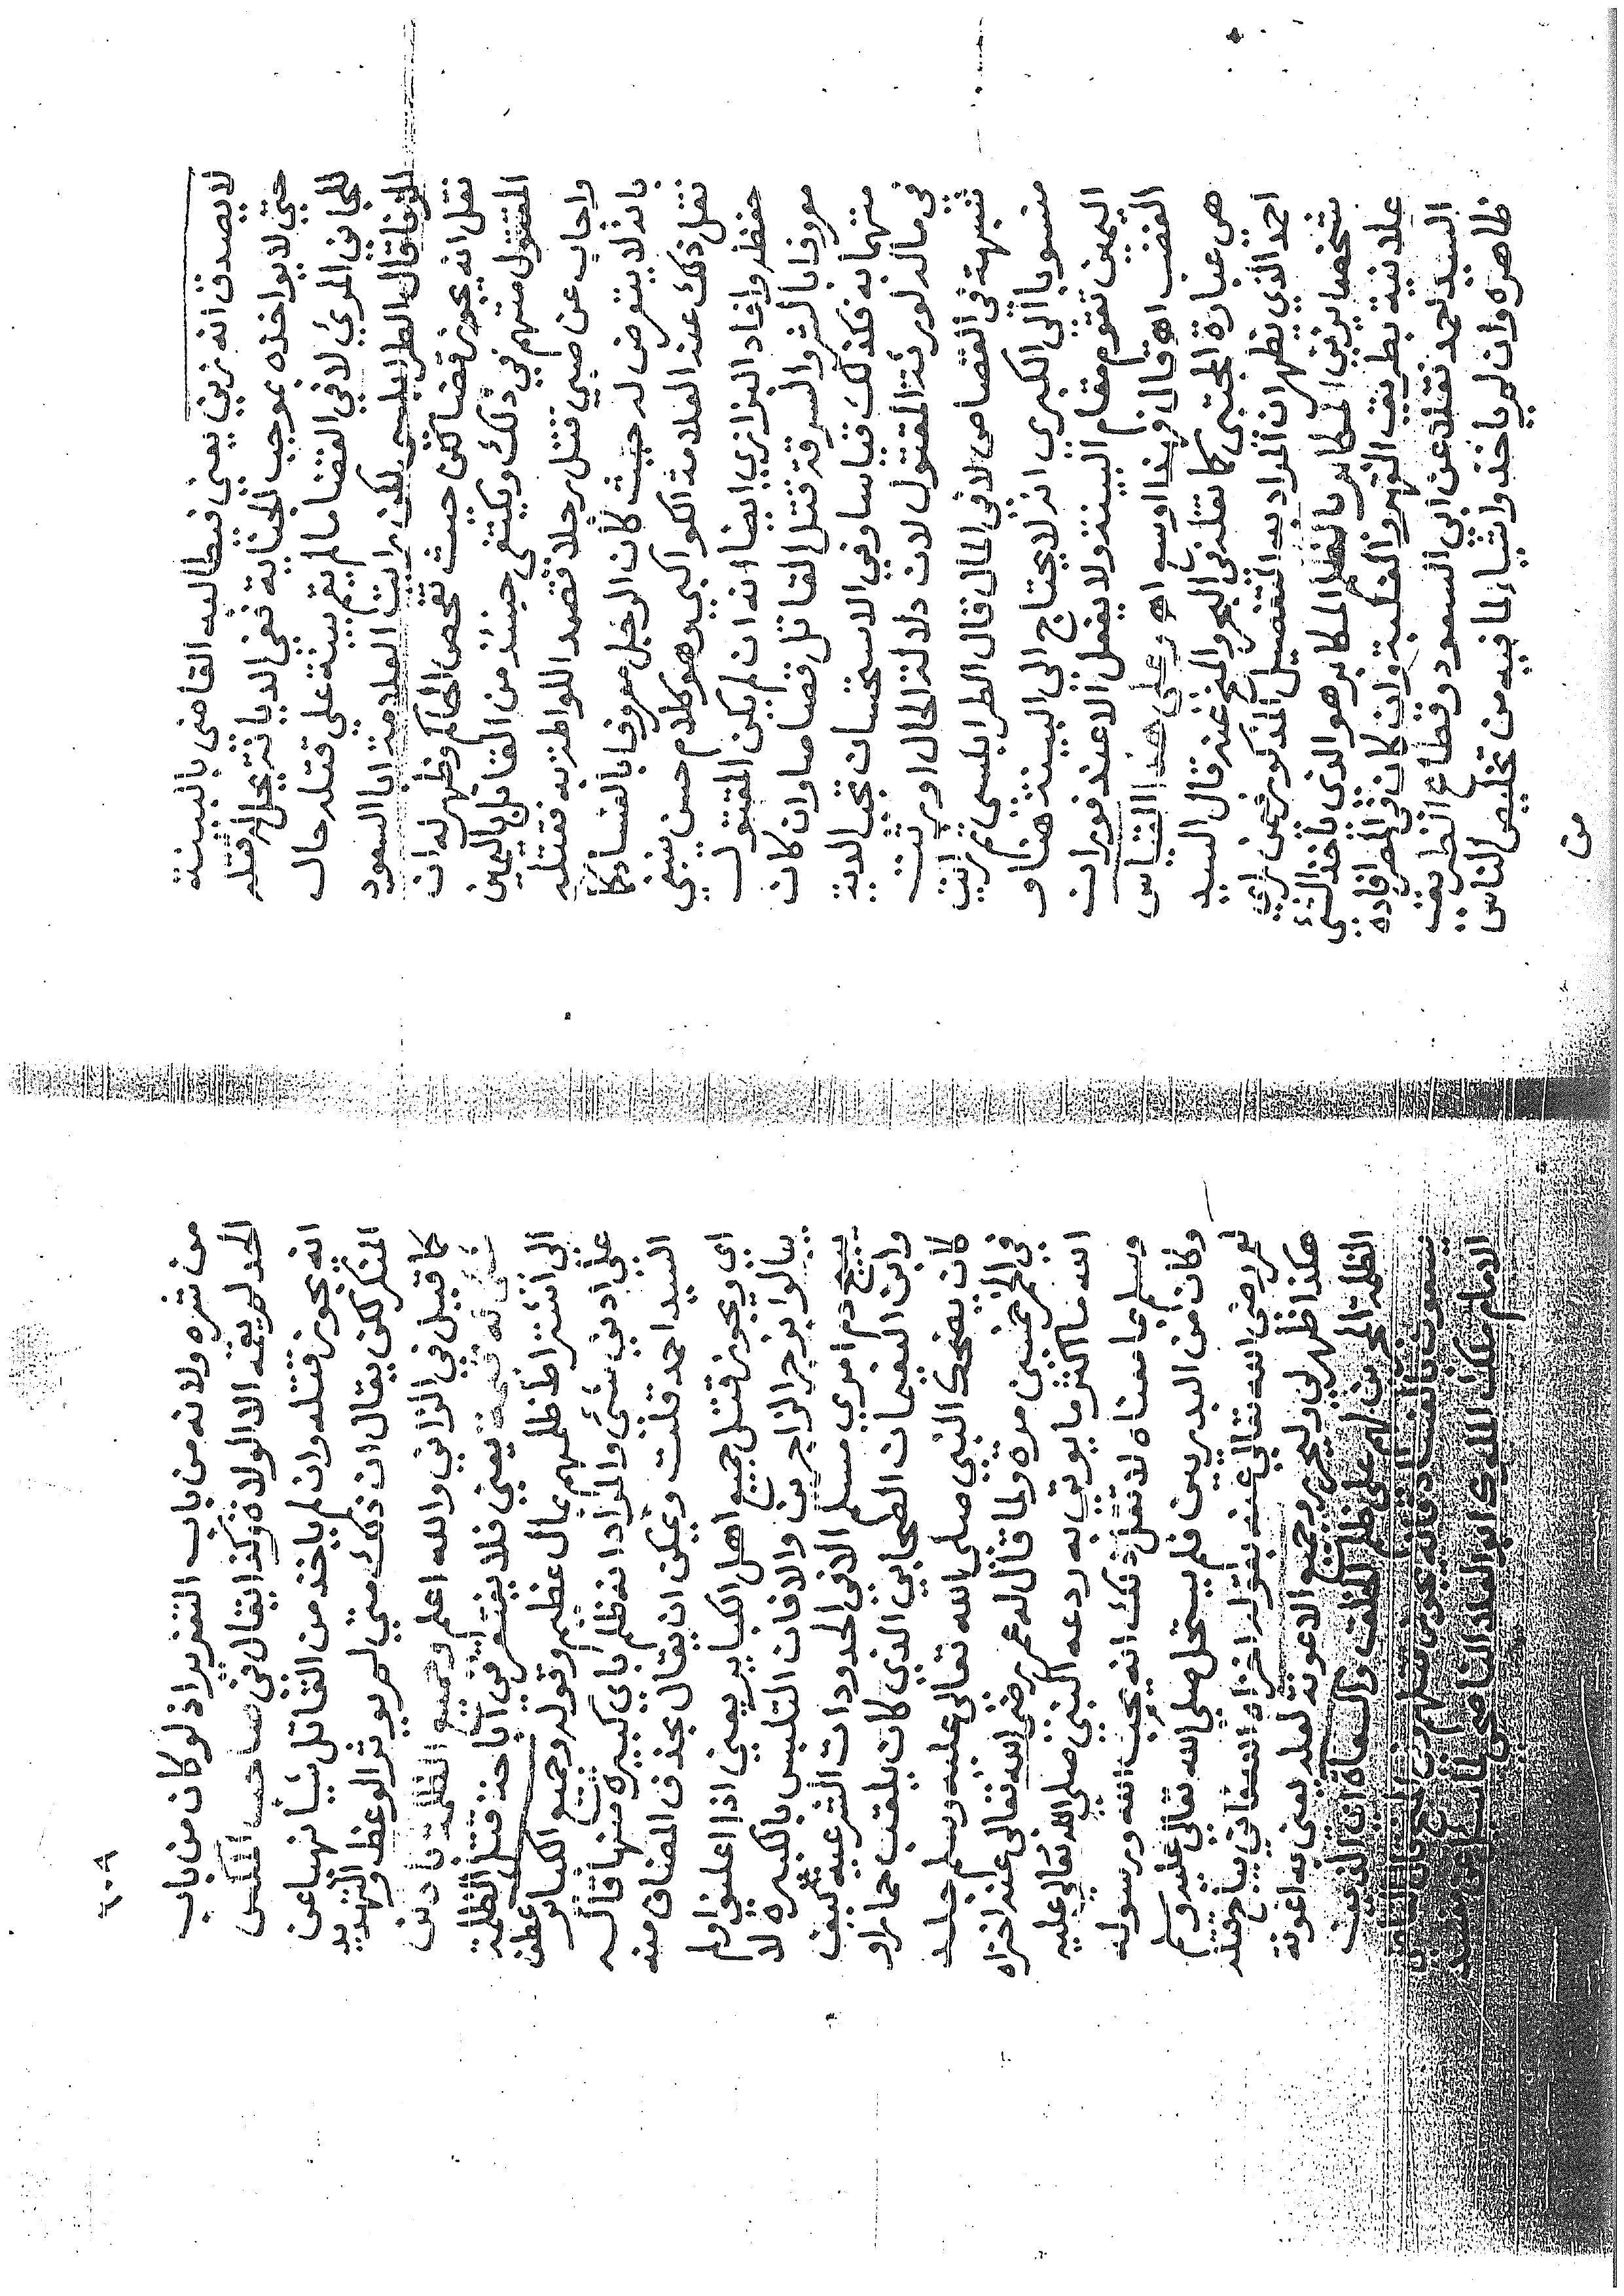 لا يصدق انه زنى يعني فيطالبه القاضى بالبينة
حتى لا يواخذه بموجب الجناية ففى الديانة يحل قتله
للجاني المروي لا في القضا ما لم يقم بينة على قتله حال
الزنا قال الطرابلسى لكن رايت العلامة ابا السعود
نقل انه يجوز قضا لكن حيث تفحص الحاكم وظهر له ان
المقتول متهم في ذلك ويكتفى حينئذ من القاتل باليمين
واجاب عن صبي قتل رجلا قصد اللواطة به فقتله
بانه لا يتعرض له حيث كان الرجل معروفا بالفساد كما
نقل ذلك عنه العلامة الكواكبي وهو كلام حسن ينبغي
حفظه وافاد البزازي ايضا انه ان لم يكن المقتول
معروفا بالشر والسرقة قتل القاتل قصاصا وان كان
متهما به فكذلك قياسا وفي الاستحسان تجب الدية
في ماله لورثة المقتول لان دلالة الحال اورثت
شبهة في القصاص لا في المال قال الطرابلسى ثم رايت
منسوبا الى الكبرى انه لا يحتاج الى البينة هنا و
اليمين تقوم مقام البينة ولا يفعل الا عند فوران
الغضب اهـ قال وهذا اوسع اهـ وعلى هذا القياس
هى عبارة المجتبى كما نقله في البحر والمنح عنه قال السيد
احمد الذي يظهر ان المراد به التفصيل المذكور فيمن راى
شخصا يزنى المكابر بالظلم المكابر هو الذى ياخذ الشئ
علانية بطريق القهر والغلبة وان كان في المصر افاده
السيد احمد نقلا عن ابى السعود وقطاع الطريق
ظاهره وان لم ياخذ واشياء لما فيه من تخليص الناس
من
٢٠٩
من شره ولانه من باب التعزير اذ لو كان من باب
الحد لم يقمه الا الولاة وكذا يقال في صاحب المكس
انه يجوز قتله وان لم ياخذ من القاتل شيأ نهيا عن
المنكر لكن يقال ان ذلك متى لم يوثر الوعظ والتهديد
كما قيل في الزاني والله اعلم وجميع الظلمة بادنى
شئ له قيمة يعني فلا يفتقر في اباحة قتل الظلمة
الى اشتراط ظلمهم بمال عظيم وقوله وجميع الكبائر عطف
على ادنى شئ والمراد انه ظلم باي كبيرة منها قاله
السيد احمد قلت ويمكن ان يقال بحذف المضاف منه
اي ويجوز قتل جميع اهل الكباير يعني اذا اعلنوا ولم
يبالوا بزجر الزاجرين والا فان التلبس بالكبيرة لا
يبيح دم امرئ مسلم الا في الحدودات الشرعية كيف
وابن النعيمان الصحابي الذي كان يلقب حمارا و
كان يضحك النبي صلى الله تعالى عليه وسلم جلد
في الخمر خمسين مرة ولما قال له عمر رضى الله تعالى عنه اخزاه
الله ما اكثر ما يوتى به ردعه النبي صلى الله تعالى عليه
وسلم بما معناه لا تقل ذلك انه يحب الله ورسوله
وكان من البدريين فلم يستحل صلى الله تعالى عليه وسلم
لعمر رضى الله تعالى عنه بقوله اخزاه الله
هكذا ظهر لى وليحرر وجميع الاعونة لعله يعني به اعونة
الظلمة المحرضين لهم على ظلم الخلق والسعاة اى الذين
يسعون بالفساد قاله
الامام ملك الملوك ابو العلا الناصحي